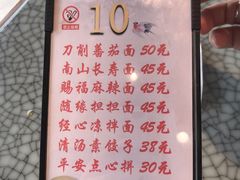 10
刀削番茄面 50元
南山长寿面 45元
赐福麻辣面 45元
随缘担担面 45元
经心凉拌面 45元
清汤素饺子 38元
平安点心拼 30元